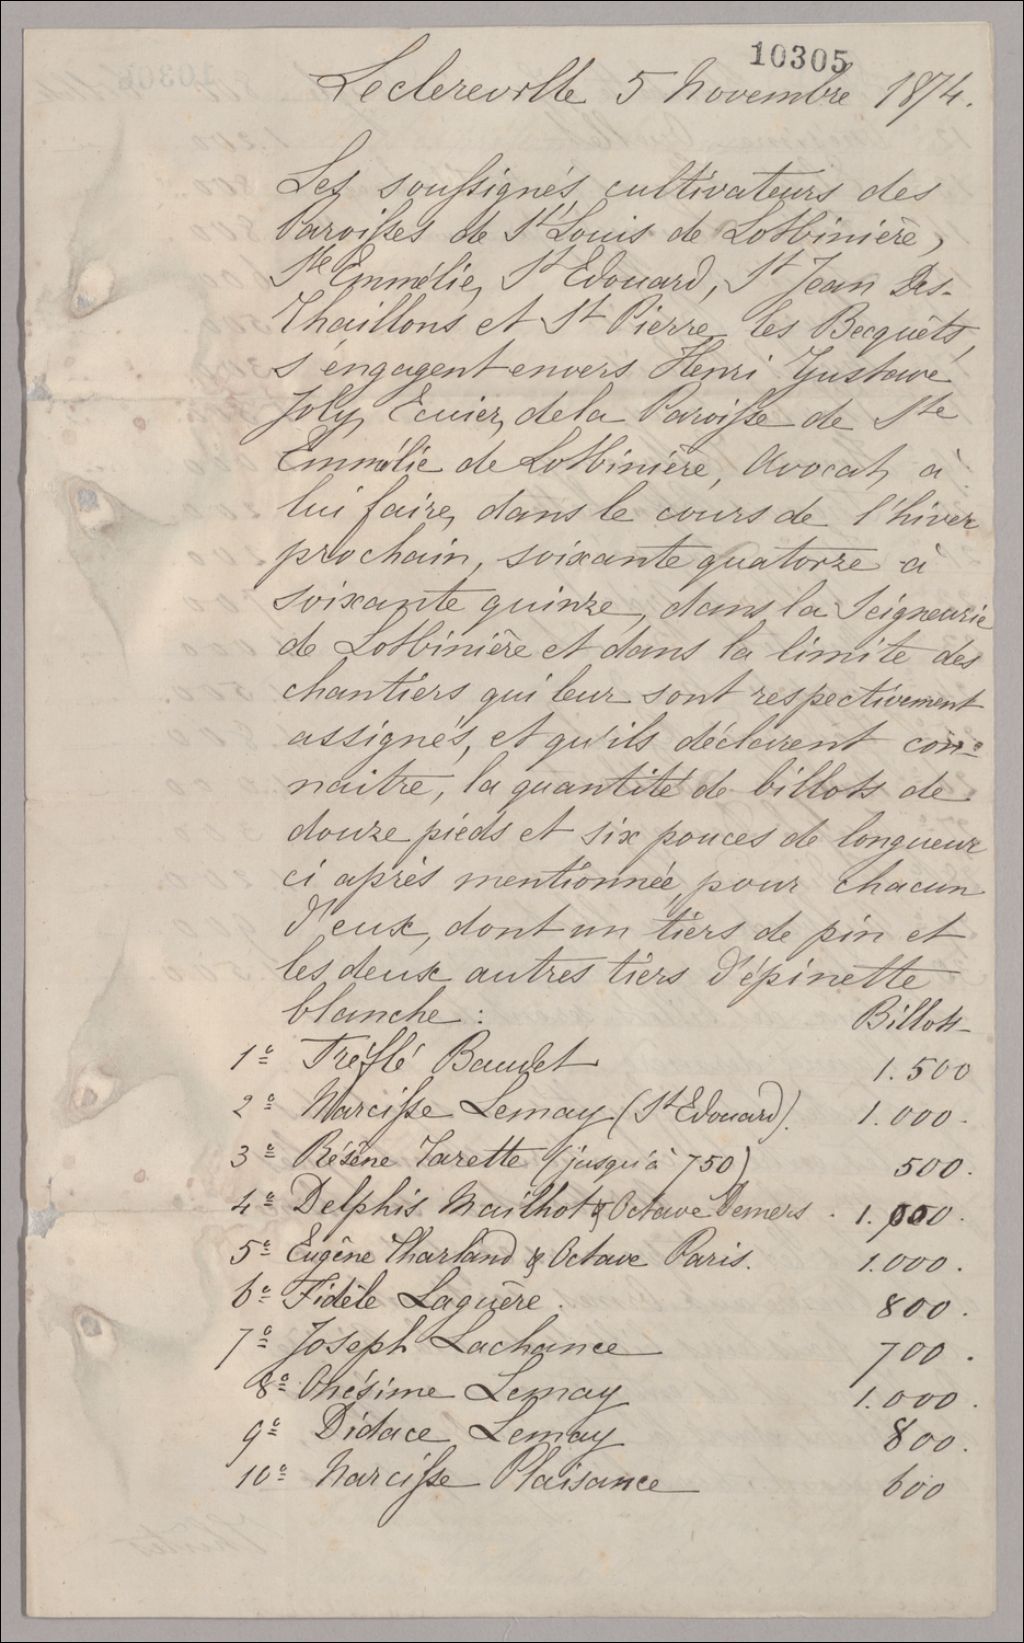 10305
Leclercville 5 Novembre 1874.
Les soussignés, cultivateurs des
Paroisses de St Louis de Lotbinière,
Ste Emmélie, St Edouard, St Jean Des-
Chaillons et St Pierre les Becquêts,
s'engagent envers Henri Gustave
Joly, Ecuier, de la Paroisse de Ste
Emmélie de Lotbinière, Avocat, à
lui faire, dans le cours de l'hiver
prochain, soixante quatorze à
soixante quinze, dans la Seigneurie
de Lotbinière et dans la limite des
chantiers qui leur sont respectivement
assignés, et qu'ils déclarent con=
naitre, la quantité de billots de
douze pieds et six pouces de longueur
ci après mentionnée, pour chacun
d'eux, dont un tiers de pin et
les deux autres tiers d'épinette
blanche :
Billots
1º Tréflé Baudet 1.500
2º Narcisse Lemay (St Edouard). 1.000.
3º Résène Tarette (jusqu'à 750) 500.
4º Delphis Mailhot & Octave Demers. 1.000.
5º Eugène Charland & Octave Paris. 1.000.
6º Fidèle Laguère. 800.
7º Joseph Lachance 700.
8º Onésime Lemay 1.000.
9º Didace Lemay 800.
10º Narcisse Plaisance 600